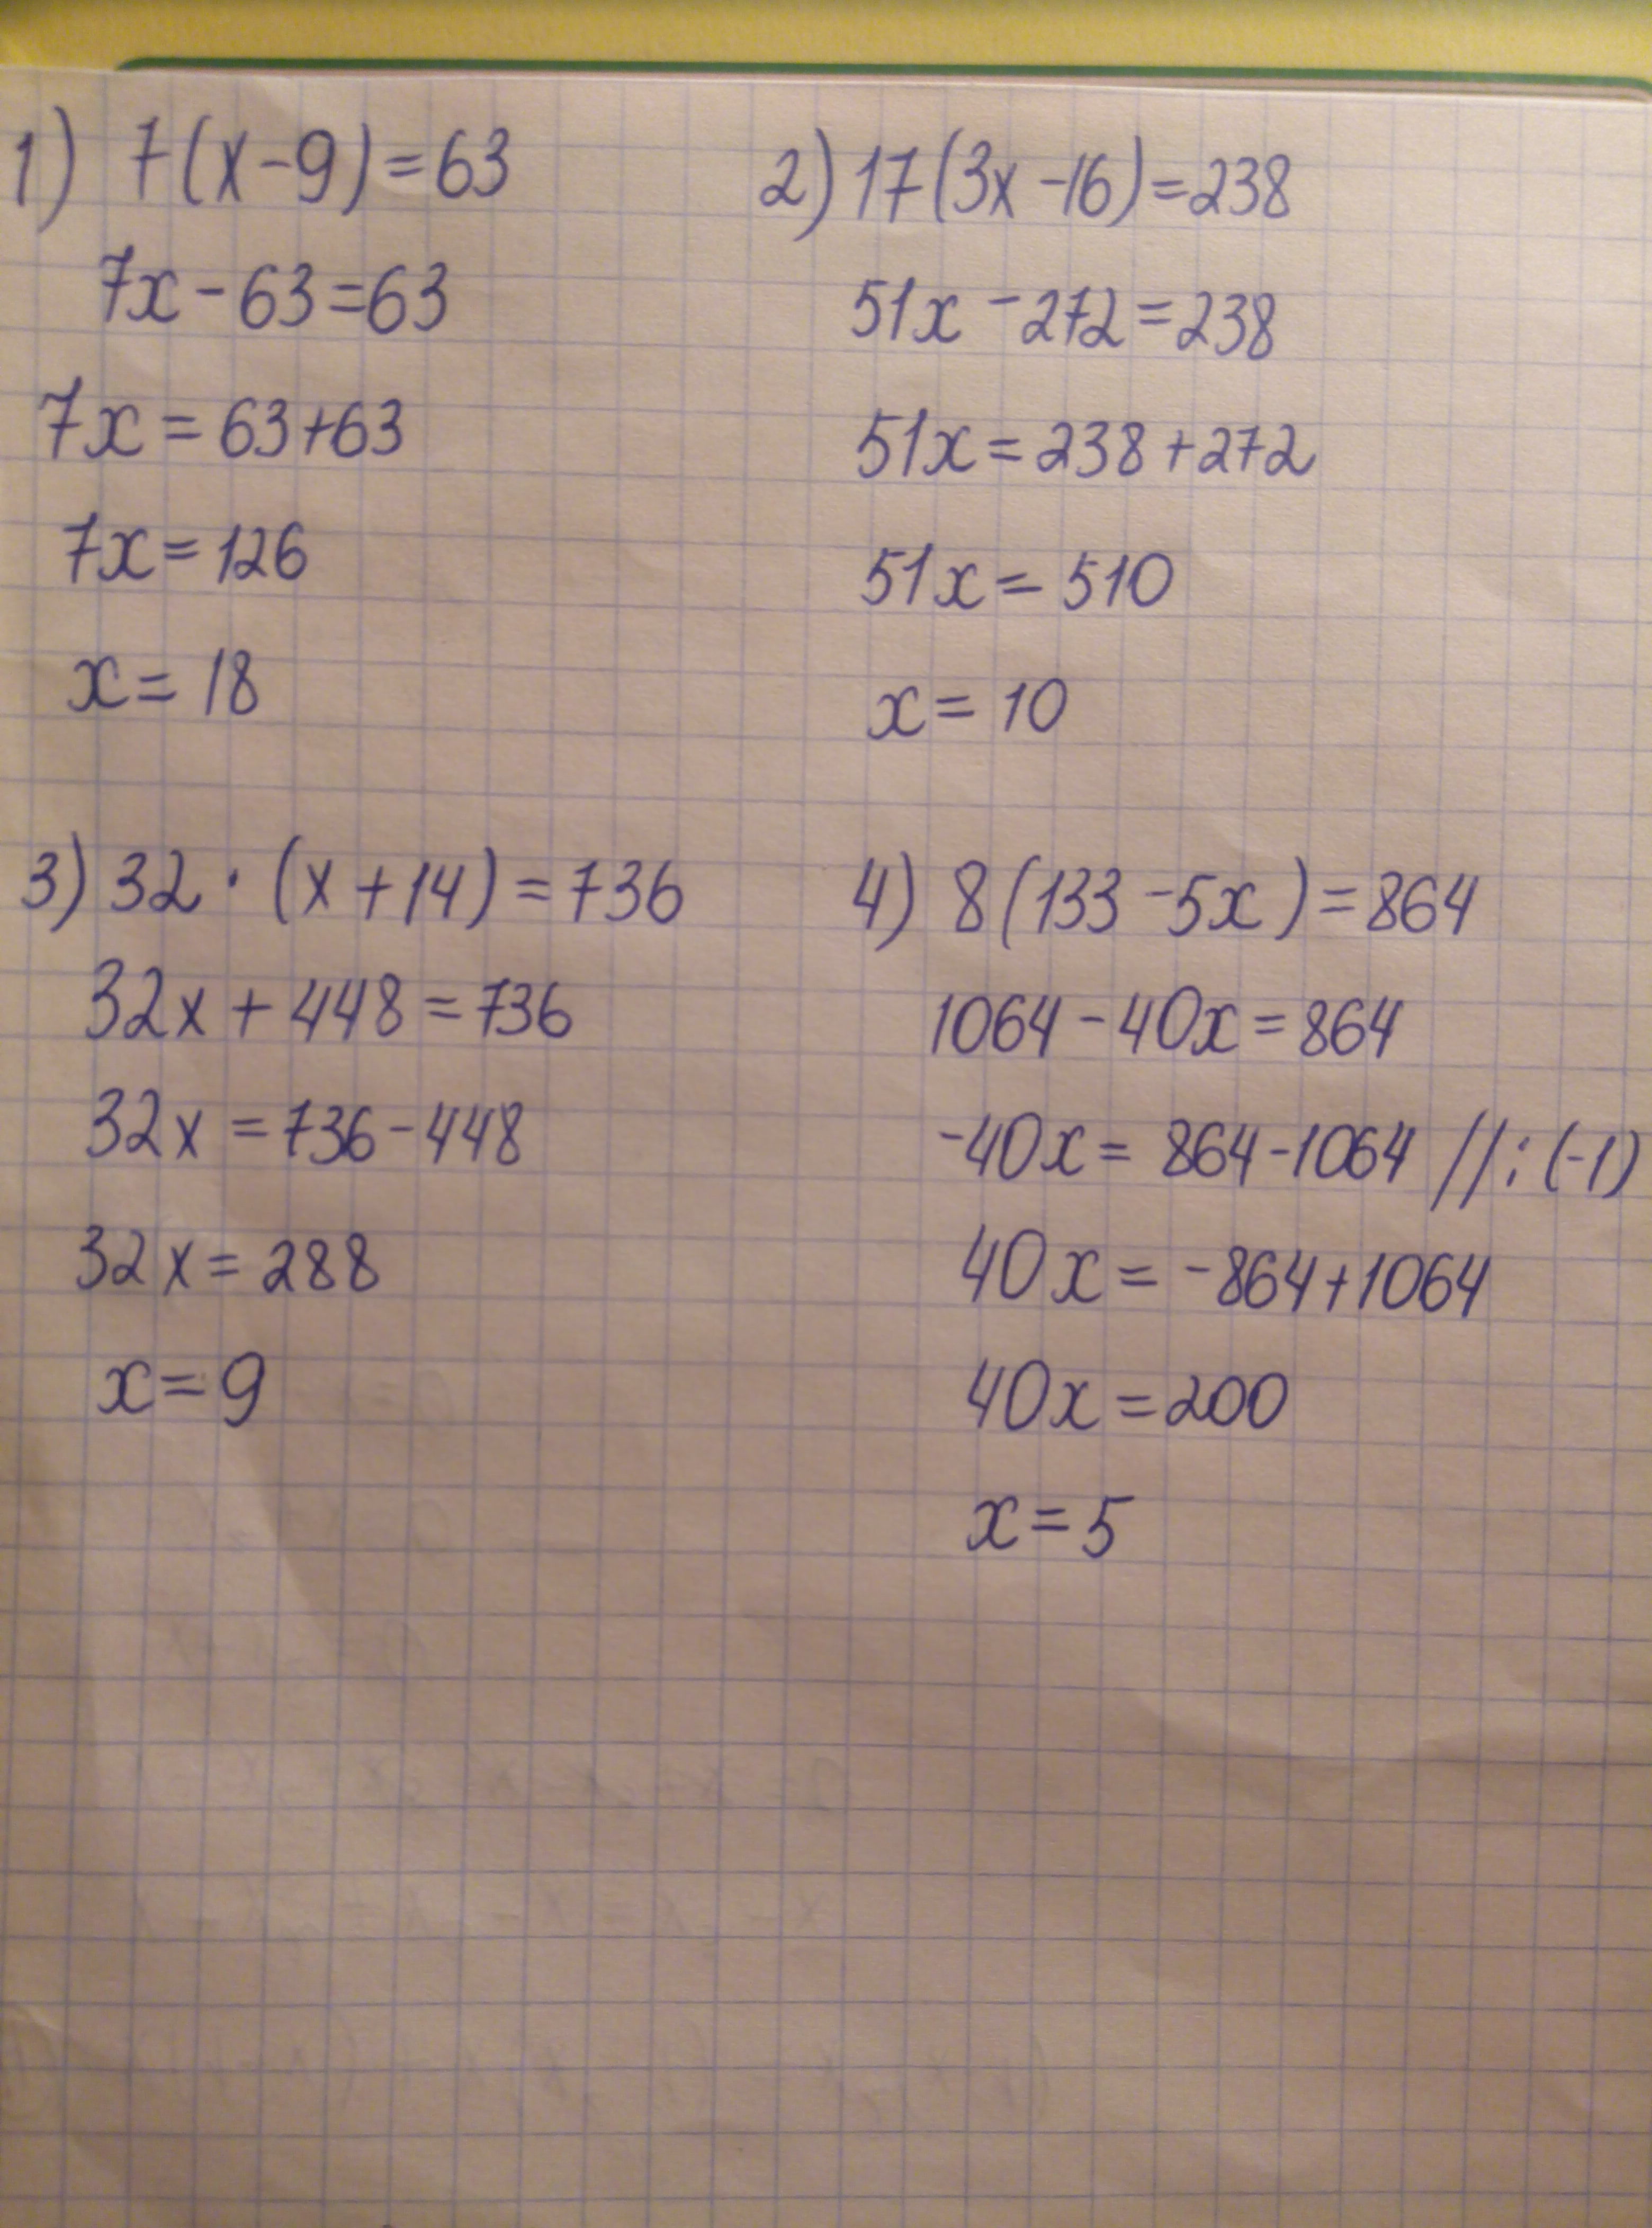 1) 7(x-9)=63
7x-63=63
7x=63+63
7x=126
x=18
2) 17(3x-16)=238
51x-272=238
51x=238+272
51x=510
x=10
3) 32·(x+14)=736
32x+448=736
32x=736-448
32x=288
x=9
4) 8(133-5x)=864
1064-40x=864
-40x=864-1064 //:(-1)
40x=-864+1064
40x=200
x=5